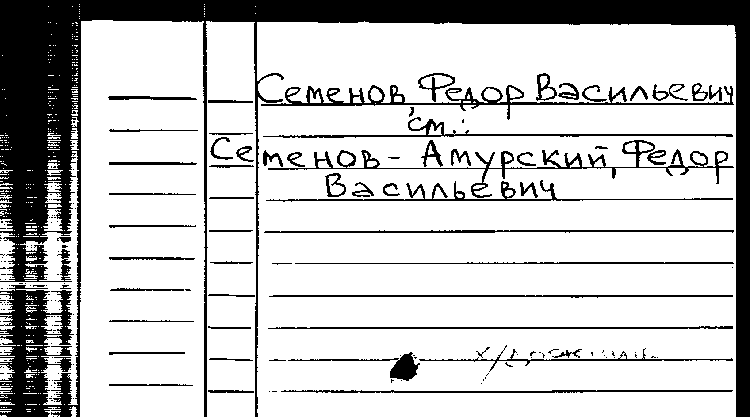 Семенов, Федор Васильевич
см.:
Семенов - Амурский, Федор
Васильевич